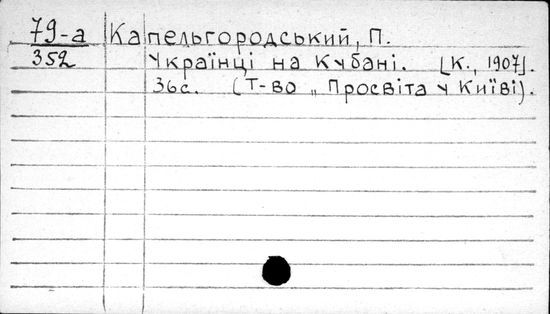 79-а Капельгородський, П.
352 Українці на Кубані. [К., 1907].
36с. (Т-во „Просвіта у Київі).